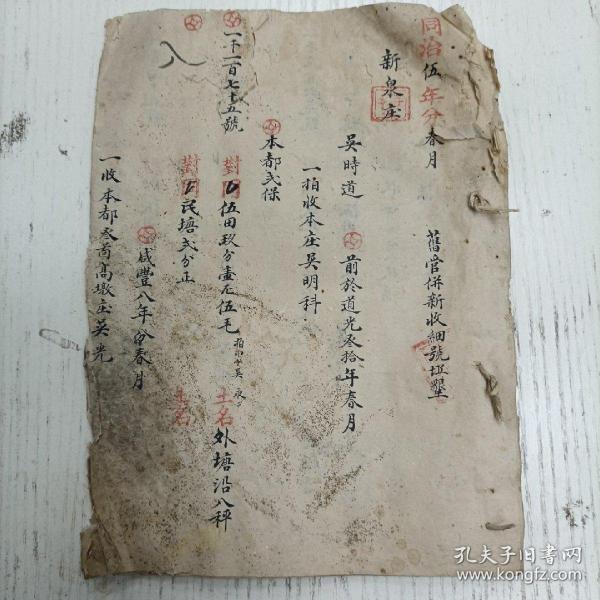 同治伍年分春月
舊管併新收細號坵墾
新泉庄
吳時道
前於道光叁拾年春月
一拍收本庄吳明科
本都弍保
一千一百七十五號
對同 伍田玖分壹厘伍毛 土名 外塘沿八秤
對同 民塘弍分正 土名
咸豐八年份春月
一收本都叁啚高墩庄吳光
孔夫子旧书网
www.kongfz.com